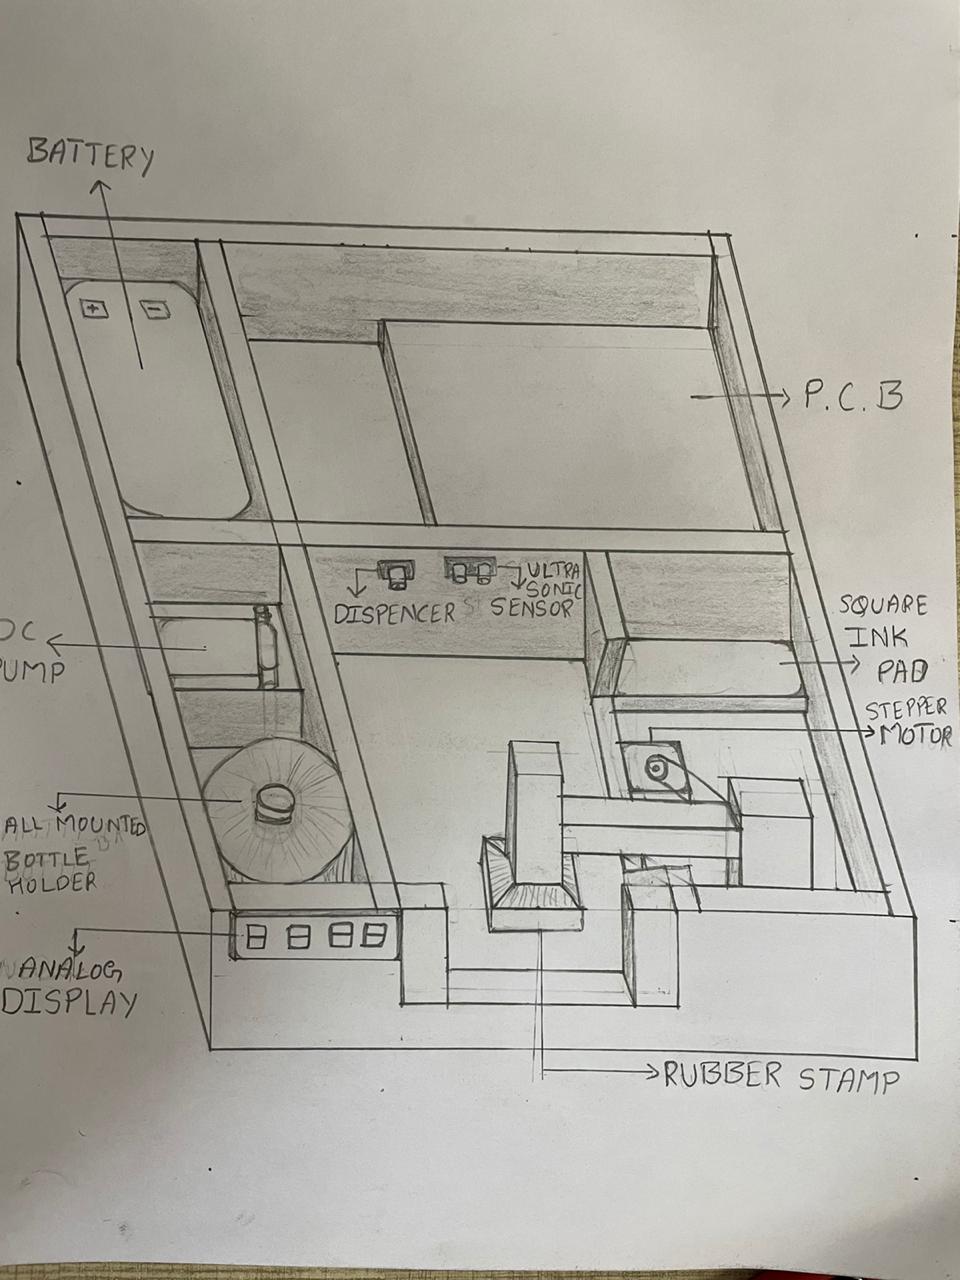 BATTERY
+ -
P.C.B
DISPENCER
ULTRA
SONIC
SENSOR
SQUARE
INK
PAD
DC
PUMP
STEPPER
MOTOR
ALL MOUNTED
BOTTLE
HOLDER
ANALOG
DISPLAY
RUBBER STAMP